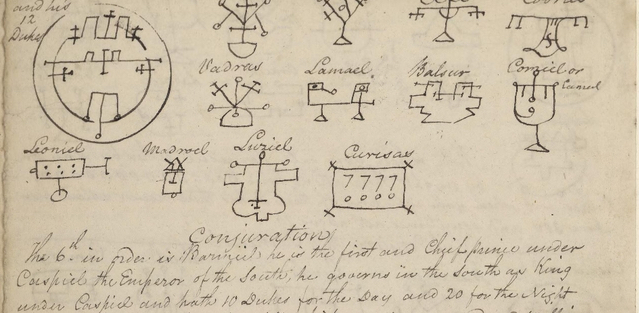 and his
12
Dukes
Vadras Lamael Balsur Comiel or
Camel
Leoniel Madroel Luziel Curisas
7777
Conjuration
The 6th in order is Barmiel he is the first and Chief prince under
Caspiel the Emperor of the South, he governs in the South as King
under Caspiel and hath 10 Dukes for the Day and 20 for the Night